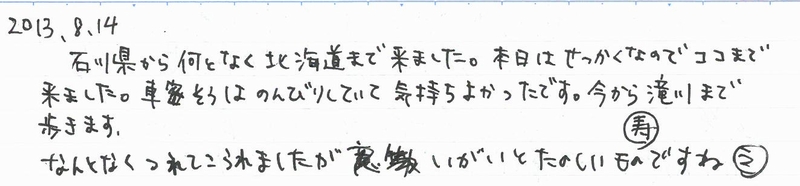 2013.8.14
石川県から何となく北海道まで来ました。本日はせっかくなのでココまで
来ました。車窓そうはのんびりしていて気持ちよかったです。今から滝川まで
歩きます。
寿
なんとなくつれてこられましたが いがいとたのしいものですね